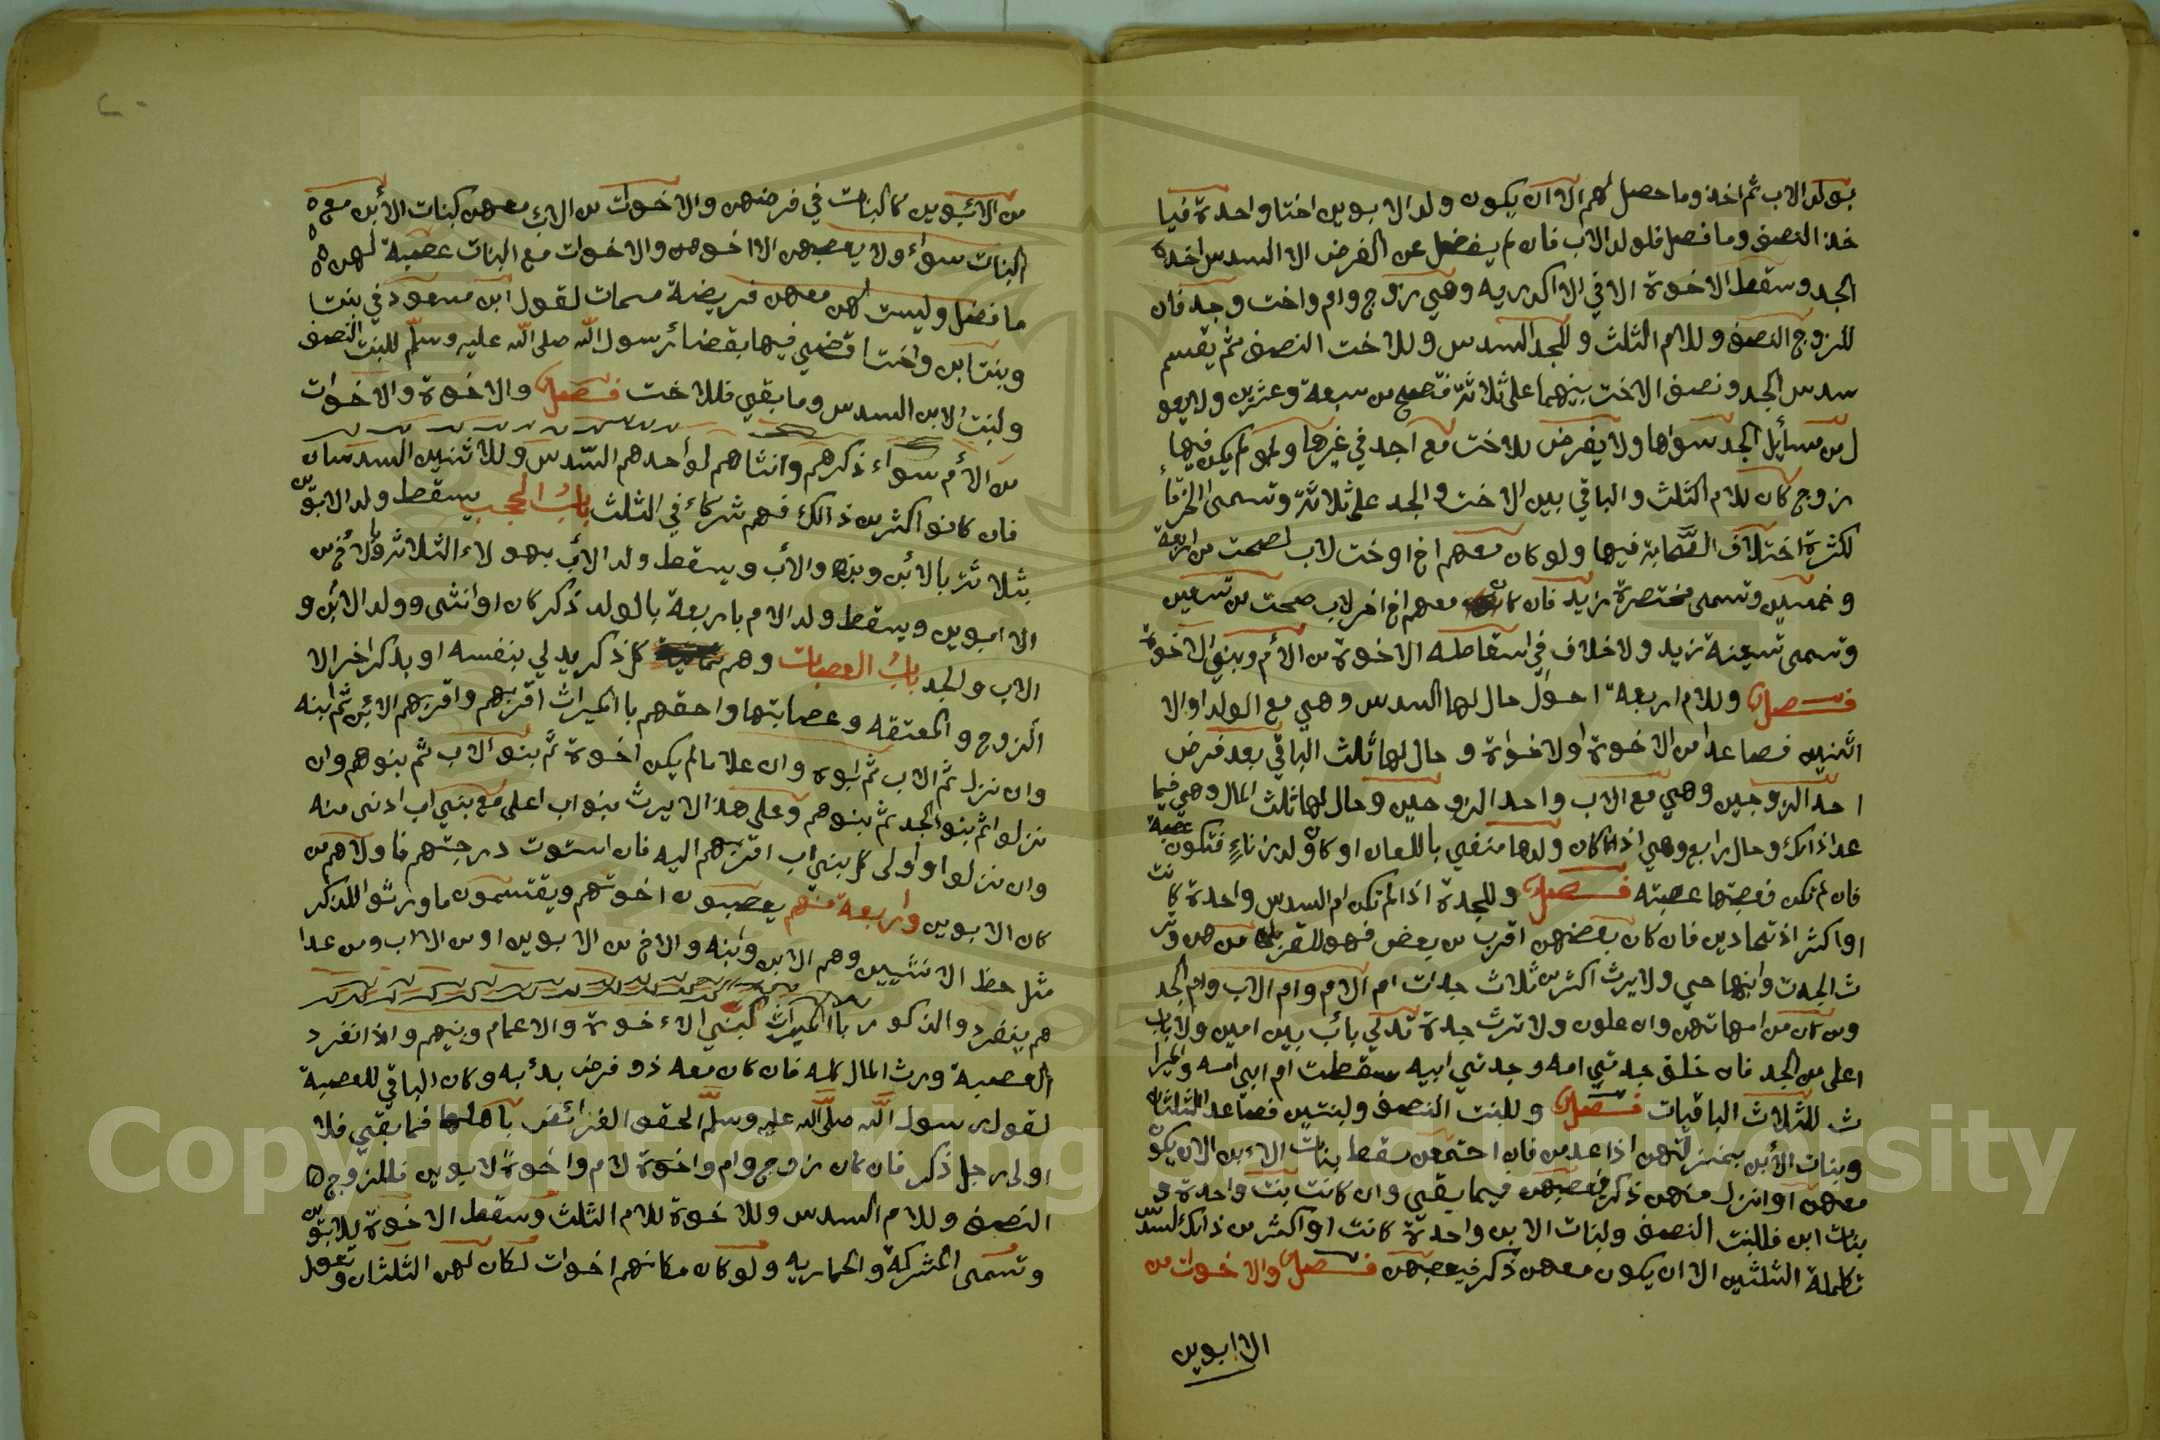 بولد الاب ثم اخذ وما حصل لهم الا ان يكون ولد الابوين اختا واحدة فيا
خذ النصف وما فصل فلولد الاب فان لم يفضل عن الفرض الا السدس اخذه
الجد وسقط الاخوة الا في الاكدريه وهي زوج وام واخت وجد فان
للزوج النصف وللام الثلث وللجد السدس وللاخت النصف ثم يقسم
سدس الجد ونصف الاخت بينهما على ثلاثة فتصح من سبعة وعشرين ولا يعو
ل من مسايل الجد سواها ولا يفرض للاخت مع اجد في غيرها ولو لم يكن فيها
زوج كان للام الثلث والباقي بين الاخت والجد على ثلاثة وتسمى الخرقا
لكثرة اختلاف الصحابة فيها ولو كان معهم اخ اوخت لاب لصحت من اربعة
وخمسين وتسمى مختصرة زيد فان كان معهم اخ اخر لاب صحت من تسعين
وتسمى تسعينة زيد ولا خلاف في اسقاطه الاخوة من الأم وبني الاخوة
فصل وللام اربعة احول حال لها السدس وهي مع الولد او الا
اثنين فصاعدا من الاخوة اولاخواة وحال لها ثلث الباقي بعد فرض
احد الزوجين وهي مع الاب واحد الزوجين وحال لها ثلث المال وهي فيما
عدا ذالك وحال رابع وهي اذا كان ولدها منفي باللعان او كان ولد زناءٍ فتكون عصبة
فان لم تكن فعصبتها عصبته فصل وللجدة اذا لم تكن ام السدس واحدة كانت
او اكثر اذ تحادين فان كان بعضهن اقرب من بعض فهو للقربى من هن وتر
ث الجدت وابنها حي ولا يرث اكثر من ثلاث جدات ام الام وام الاب وام الجد
ومن كان من امهاتهن وان علون ولا ترث جدة تدلي بأب بين امين ولا باب
اعلى من الجد فان خلق جدتي امه وجدتي ابيه سقطت ام ابي امه والميرا
ث للثلاث الباقيات فصل وللبنت النصف ولبنتين فصاعدا الثلثان
وبنات الأبن بمنزلتهن اذا عدمن فان اجتمعن سقط بنات الاءبن الا ان يكو
معهن او انزل منهن ذكر فيعصبهن فيما يقي وان كانت بنت واحدة و
بنات ابن فللبنت النصف ولبنات الابن واحدة كانت او اكثر من ذالك السدس
تكملة الثلثين الا ان يكون معهن ذكر فيعصبهن فصل والاخوت من
الابوين
من الأبوين كالبنات في فرضهن والاخوات من الاب معهن كبنات الأبن مع
البنات سواء ولا يعصبهن الا اخوهن والاخوات مع البنات عصبة لهن
ما فضل وليست لهن معهن فريضة مسمات لقول ابن مسعود في بنت
وبنت ابن واخت اقضي فيها بقضاء رسول الله صلى الله عليه وسلم للبنت النصف
ولبنت الابن السدس وما بقي فللاخت فصل والاخوة والاخوات
من الأم سواء ذكرهم وانثاهم لواحدهم السدس وللاثنين السدسان
فان كانو اكثر من ذالك فهم شركاء في الثلث باب الحجب يسقط ولد الابوين
بثلاثة بالأبن وبنه والأب ويسقط ولد الأب بهولاء الثلاثة والأخ من
الابوين ويسقط ولد الام باربعة بالولد ذكر كان اوانثى وولد الأبن و
الاب ولجد باب العصبات وهم كل ذكر يدلي بنفسه او بذكر اخر الا
الزوج والمعتقه وعصابتها واحقهم باالميراث اقربهم واقربهم الابن ثم ابنه
وان نزل ثم الاب ثم ابوه وان علا مالم يكن اخوة ثم بنو الاب ثم بنوهم وان
نزلوا ثم بنو الجد ثم بنوهم وعلى هذا لا يرث بنو اب اعلى مع بني اب ادنى منه
وان نزلوا واولى كل بني اب اقربهم اليه فان استوت درجتهم فاولاهم من
كان الابوين واربعة منهم يعصبون اخوتهم ويقتسمون ماورثو اللذكر
مثل حظ الانثيين وهم الابن وابنه والاخ من الابوين اومن الاب ومن عدا
هم ينفرد والذكور باالميراث كبني الاءخوة والاعمام وبنيهم واذا انفرد
العصبة ورث المال كله فان كان معه ذو فرض بدء به وكان الباقي للعصبة
لقول رسول الله صلى الله عليه وسلم الحقو الفرائض باهلها فما بقي فلا
اولى رجل ذكر فان كان زوج وام واخوة لام واخوة لابوين فللزوج
النصف وللام السدس وللاخوة للام الثلث وسقط الاخوة للابوين
وتسمى المشركة والحماريه ولو كان مكانهم اخوات لكان لهن الثلثان وتعول
Copyright © King Saud University